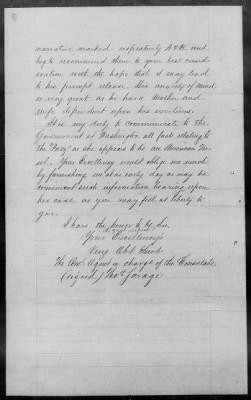 narrative marked respectively A & B. and
beg to recommend them to your best consid-
eration with the hope that it may lead
to his prompt release. His anxiety of mind
is very great as he has a Mother and
wife dependent upon his exertions.
It is my duty to communicate to the
Government at Washington all facts relating to
the "Foxy" as she appears to be an American Ves-
sel. Your Excellency would oblige me much
by furnishing me at as early day as may be
convenient such information bearing upon
her case as you may feel at liberty to
give.
I have the honor to be Sir
Your Excellency's
Very Obt Servt
The Con. Agent in charge of the Consulate.
(signed) Thos Savage